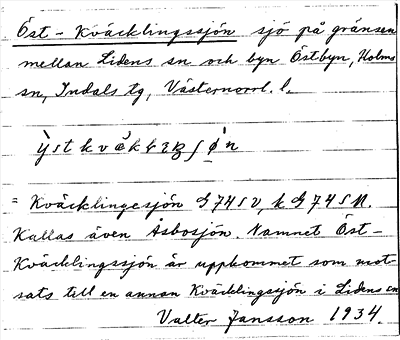 Öst-Kväcklingssjön sjö på gränsen
mellan Lidens sn och byn Östbyn, Holms
sn, Indals tg, Västernorrl. l.
= Kväcklingesjön G 74 S V, k G 74 S N.
Kallas även Åsbosjön. Namnet Öst-
Kväcklingssjön är uppkommet som mot-
sats till en annan Kväcklingssjön i Lidens sn
Valter Jansson 1934.